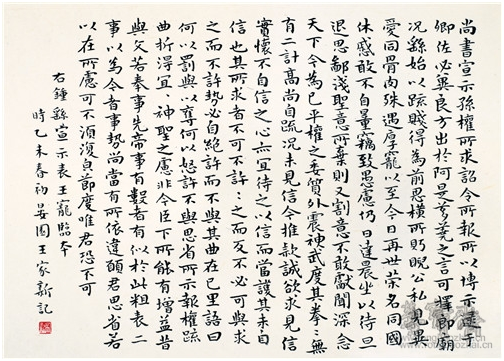 尚書宣示孫權所求詔令所報所以博示逮于
卿佐必冀良方出於阿是芻蕘之言可擇郎廟
況繇始以疏賤得為前恩橫所盼睨公私見異
愛同骨肉殊遇厚寵以至今日再世榮名同國
休慼敢不自量竊致愚慮仍日達晨坐以待旦
退思鄙淺聖意所棄則又割意不敢獻聞深念
天下今為已平權之委質外震神武度其拳々無
有二計高尚自疏況未見信今推款誠欲求見信
實懷不自信之心亦宜待之以信而當護其未自
信也其所求者不可不許々之而反不必可與求
之而不許勢必自絕許而不與其曲在己里語曰
何以罰與以奪何以怒許不與思省所示報權疏
曲折得宜々神聖之慮非今臣下所能有增益昔
與文若奉事先帝事有數者有似於此粗表二
事以為今者事勢尚當有所依違願君思省若
以在所慮可不須復貌節度唯君恐不可
右鍾繇宣示表王寵臨本
時乙未春初晏園王家新記